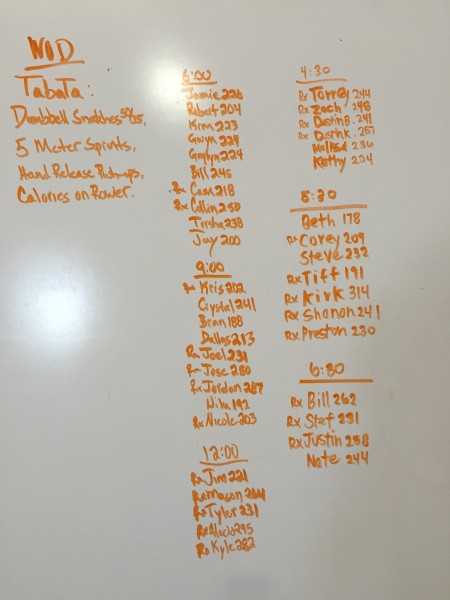 WOD
Tabata:
Dumbbell Snatches 50/35,
5 Meter Sprints,
Hand Release Pushups,
Calories on Rower.
6:00
Jamie 226
Robert 204
Kim 223
Gwyn 224
224
Bill 245
Rx Cam 218
Rx Collin 250
Trisha 238
Jay 200
9:00
Rx Kris 202
Crystal 241
Bran 188
Dallas 213
Rx Joel 231
Rx Jose 280
Rx Jordan 287
192
Rx Nicole 203
12:00
Rx Jim 221
Rx Mason 264
Rx Tyler 231
Rx 295
Rx Kyle 282
4:30
Rx Torrey 244
Rx Zach 248
Rx Dustin B. 241
Rx Dustin K. 257
Melissa 236
Kathy 234
5:30
Beth 178
Rx Corey 209
Steve 232
Rx Tiff 191
Rx Kirk 314
Rx Shanon 241
Rx Preston 230
6:30
Rx Bill 262
Rx Stef 231
Rx Justin 258
Nate 244